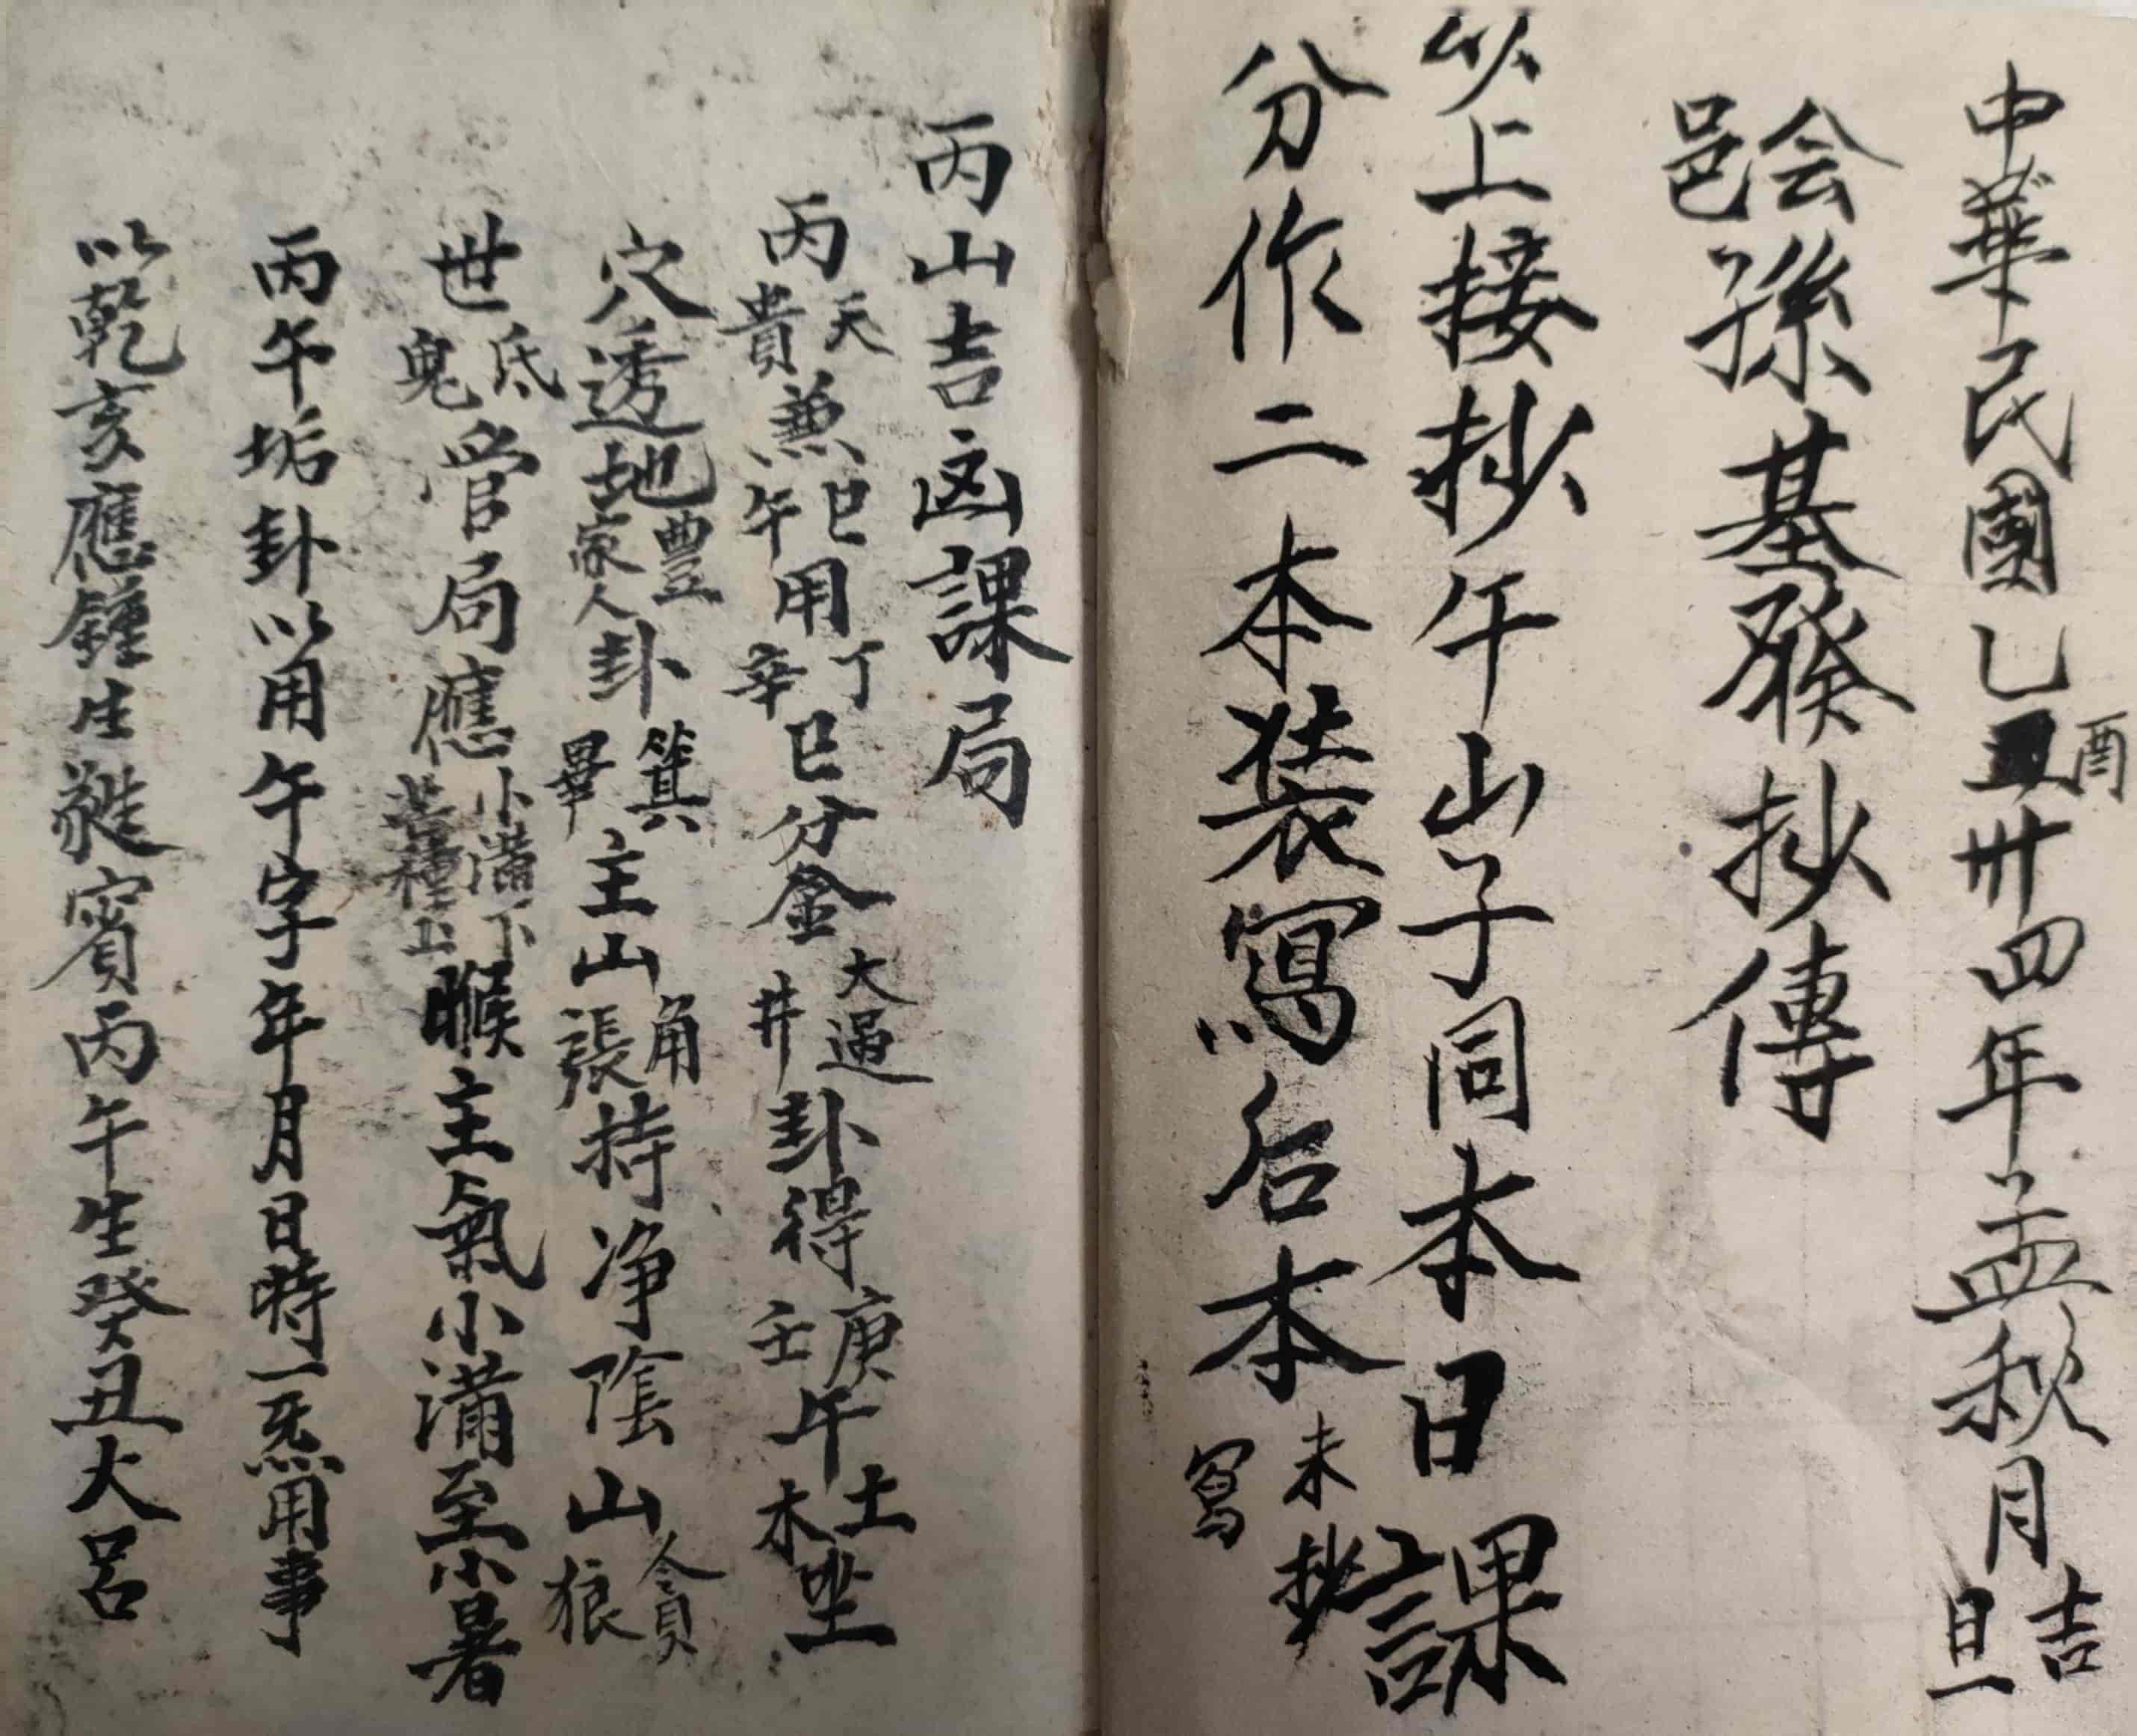 中華民國乙酉卅四年孟秋月吉旦
会邑孫基發抄傳
以上接抄午山子同本日課
分作二本装寫后本未抄寫
丙山吉凶課局
丙天貴兼巳午用丁辛巳分金大過井卦得庚壬午土木坐
穴透地豐家人卦箕畢主山角張持净陰山貪狼
世氐鬼管局應小滿下芒種上候主氣小滿至小暑
丙午垢卦以用午字年月日時一炁用事
以乾亥應鐘生蕤賓丙午生癸丑大呂